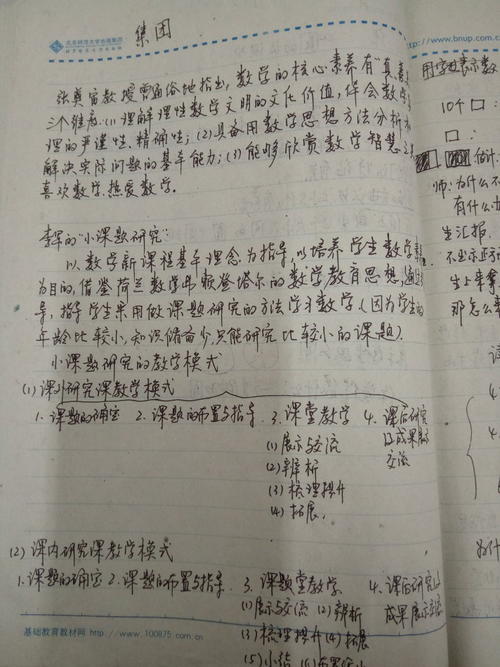 北京师范大学出版集团
集团
www.bnup.com
张奠宙教授曾通俗地指出,数学的核心素养有"真、善
三个维度:(1)理解理性数学文明的文化价值,体会数学
理的严谨性、精确性;(2)具备用数学思想方法分析和
解决实际问题的基本能力;(3)能够欣赏数学智慧之
喜欢数学,热爱数学。
李军的"小课题研究"
以数学新课程基本理念为指导,以培养学生数学素
为目的,借鉴荷兰数学弗赖登塔尔的数学教育思想,
导,指导学生采用做课题研究的方法学习数学(因为学生的
年龄比较小,知识储备少,只能研究比较小的课题).
小课题研究的教学模式
(1)课外研究课教学模式
1.课题的确定 2.课题的布置与指导 3.课堂教学 4.课后研究
(1)展示与交流 及成果展示
(2)辨析 交流
(3)梳理提升
(4)拓展.
(2)课内研究课教学模式
1.课题的确定 2.课题的布置与指导 3.课题堂教学 4.课后研究及
(1)展示与交流 (2)辨析 成果展示交流
(3)梳理提升 (4)拓展
(5)小结
基础教育教材网 http://www.100875.com.cn
用字母表示数
10个口:
口:
估计.
师:为什么不
有什么办
生汇报.
生上来拿
那怎么
为什